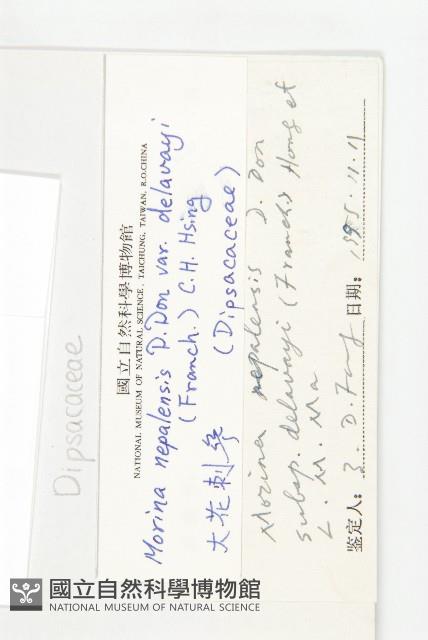 Dipsacaceae
國立自然科學博物館
NATIONAL MUSEUM OF NATURAL SCIENCE, TAICHUNG, TAIWAN, R.O.CHINA
Morina nepalensis D.Don var. delavayi
(Franch.) C.H. Hsing
大花刺參 (Dipsacaceae)
Morina nepalensis D. Don
subsp. delavayi (Franch.) Hong et
L. M. Ma
鉴定人: 日期: 1995.11.11
國立自然科學博物館
NATIONAL MUSEUM OF NATURAL SCIENCE